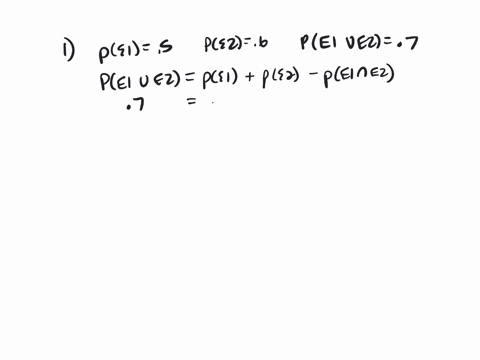 1) P(ε1) = .5 P(ε2) = .6 P(E1 ∪ E2) = .7
P(E1 ∪ E2) = P(ε1) + P(ε2) - P(E1 ∩ E2)
.7 = .